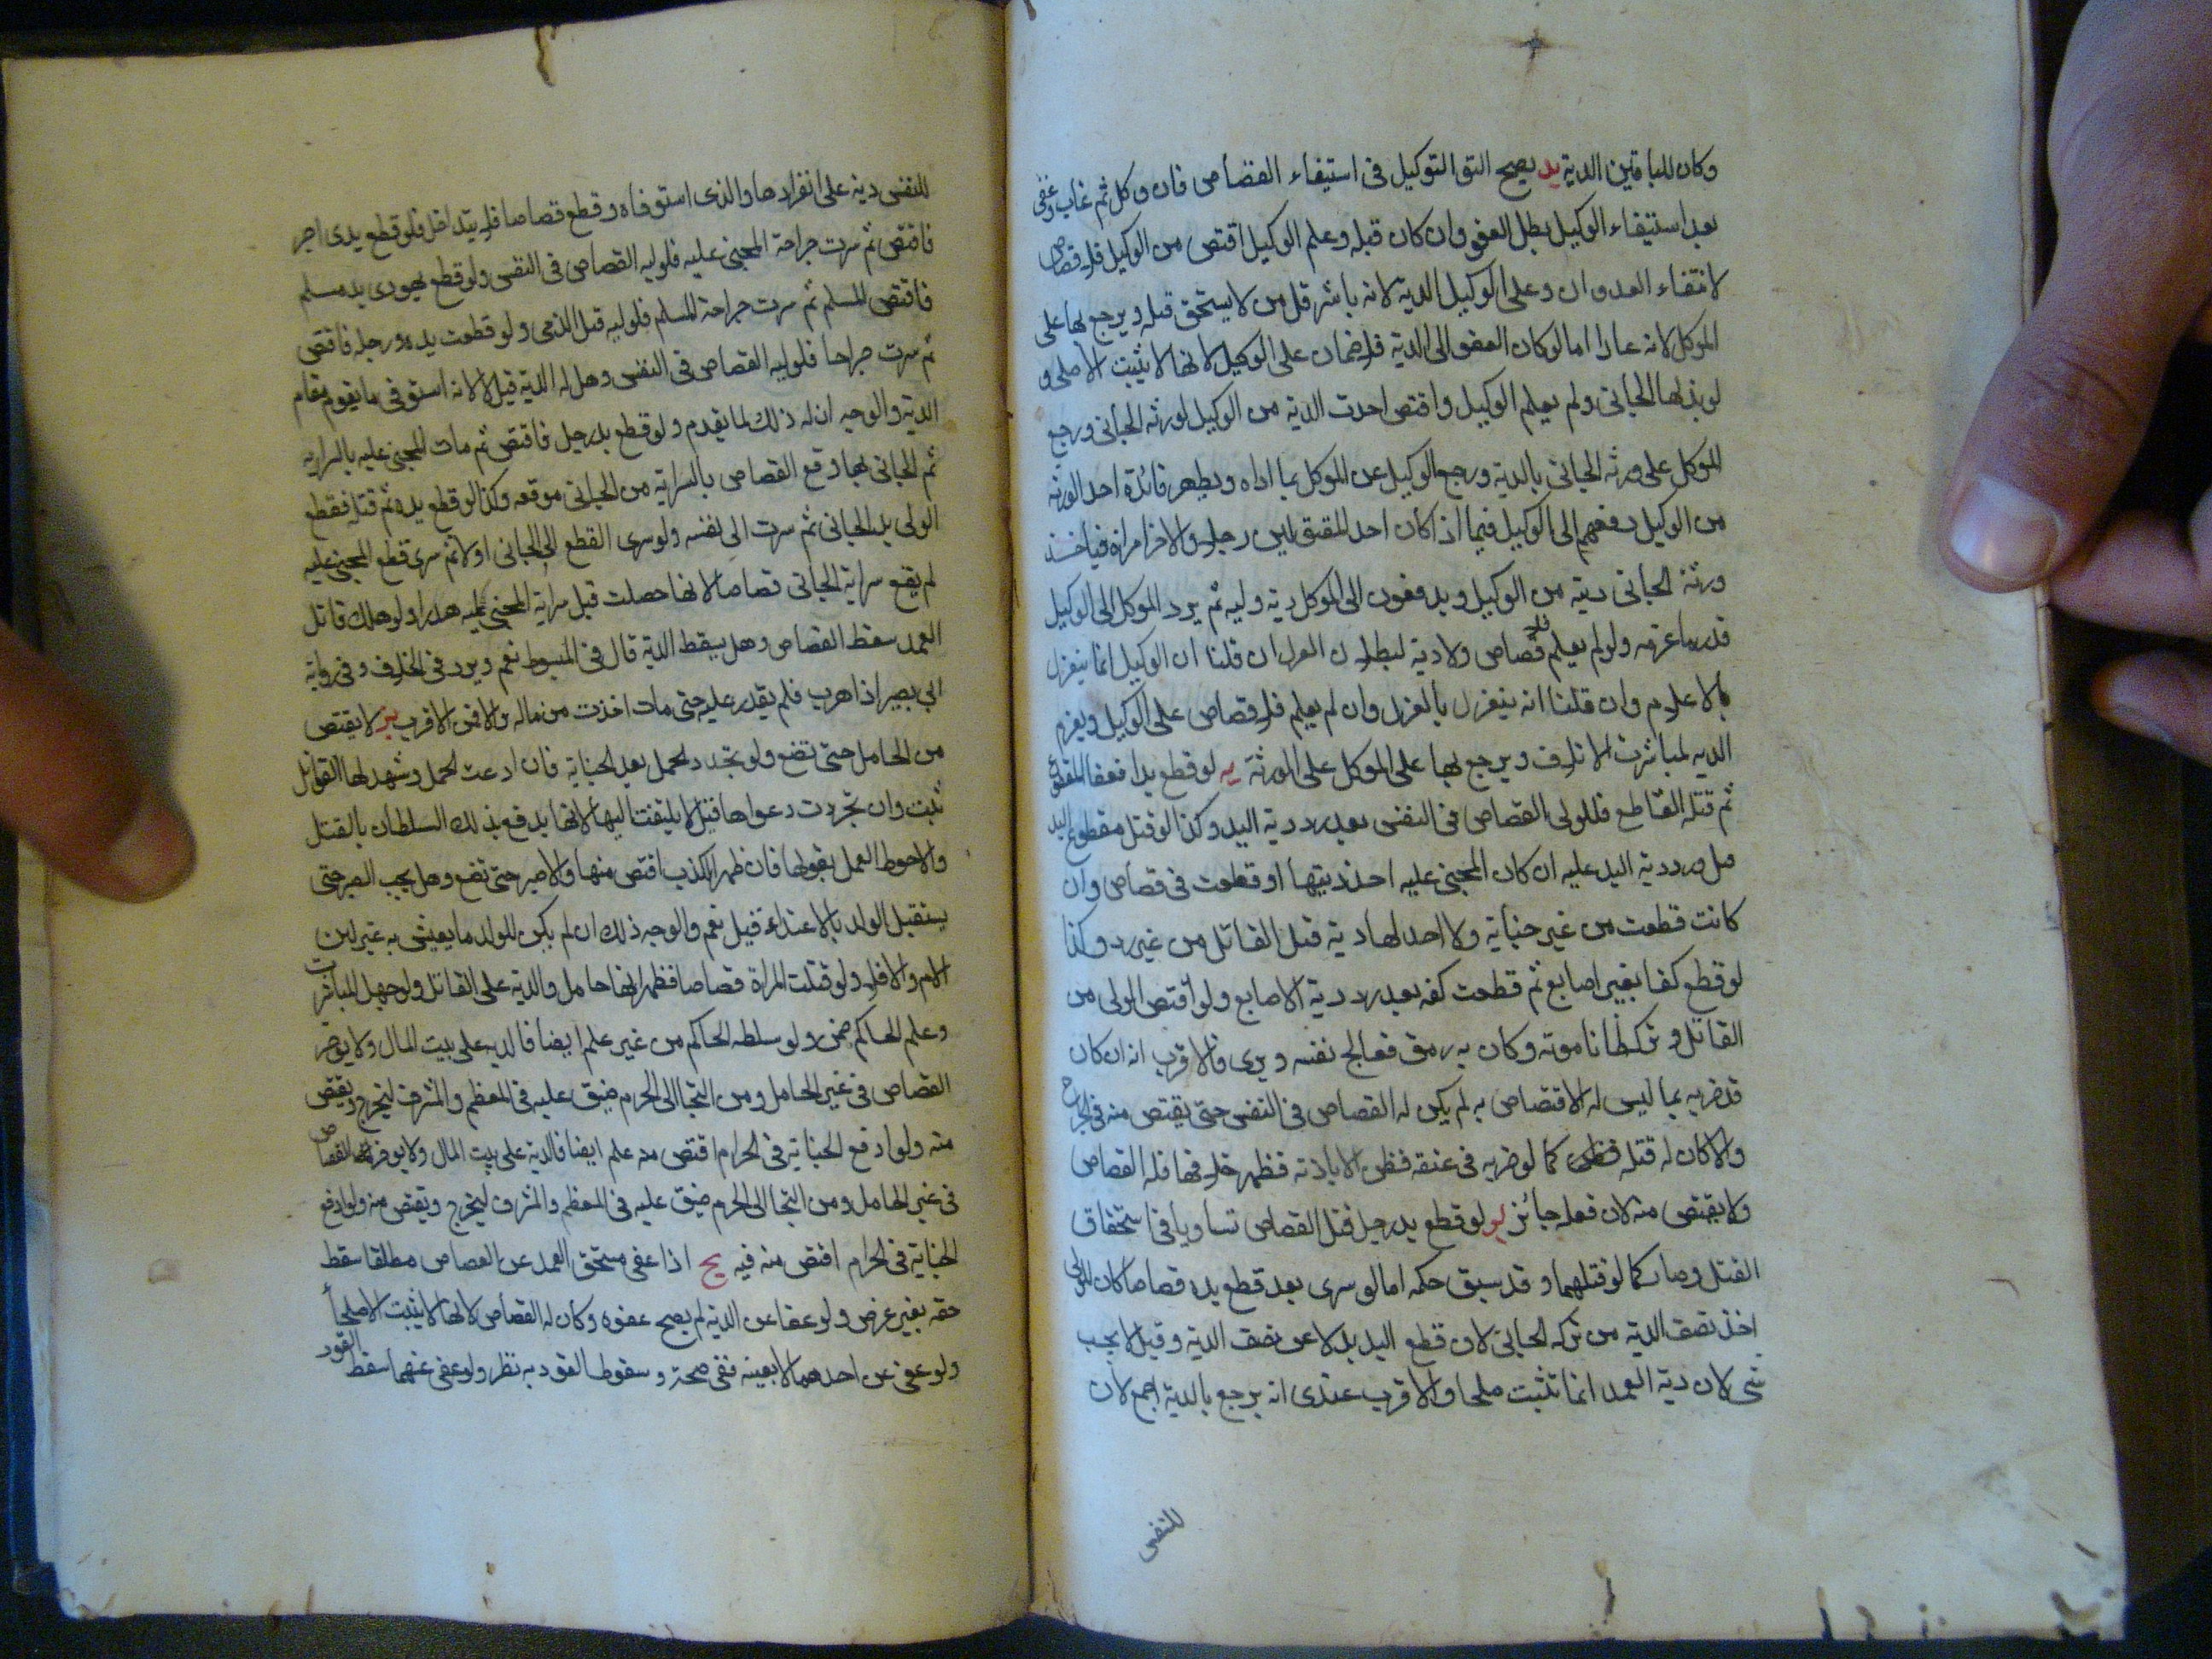 وكان للباقين الدية يد يصح التو التوكيل في استيفاء القصاص فان وكل ثم غاب وعفى
بعد استيفاء الوكيل بطل العفو وان كان قبله وعلم الوكيل اقتص من الوكيل فلا قصاص
لانتفاء العدوان وعلى الوكيل الدية لانه باشر قتل من لا يستحق قتله ويرجع بها على
الموكل لانه غارا اما لو كان العفو الى الدية فلا ضمان على الوكيل لانها لا تثبت الا صلحا و
لو بذلها الجاني ولم يعلم الوكيل واقتص اخذت الدية من الوكيل لورثة الجاني ورجع
الموكل على ورثة الجاني بالدية ورجع الوكيل على الموكل بما اداه ويظهر فائدة اخذ الورثة
من الوكيل دفعهم الى الوكيل فيما اذا كان احد المقتولين رجلا والاخر امراة فياخذ
ورثة الجاني ديته من الوكيل ويدفعون الى الموكل دية وليه ثم يرد الموكل الى الوكيل
قدر ما غرمه ولو لم يعلم فلا قصاص ولا دية لبطلان العزل ان قلنا ان الوكيل انما ينعزل
بالاعلام وان قلنا انه ينعزل بالعزل وان لم يعلم فلا قصاص على الوكيل ويغرم
الدية لمباشرته الاتلاف ويرجع بها على الموكل على الورثة يه لو قطع يدا فعفا المقطوع
ثم قتله القاطع فللولي القصاص في النفس بعد رد دية اليد وكذا لو قتل مقطوع اليد
قتل ورد دية اليد عليه ان كان المجني عليه اخذ ديتها او قطعت في قصاص وان
كانت قطعت من غير جناية ولا اخذ لها دية قتل القاتل من غير رد وكذا
لو قطع كفا بغير اصابع ثم قطعت كفه بعد رد دية الاصابع ولو اقتص الولي من
القاتل وتركه ظانا موته وكان به رمق فعالج نفسه وبرئ فالاقرب انه ان كان
قد ضربه بما ليس له الاقتصاص به لم يكن له القصاص في النفس حتى يقتص منه في الجراح
والا كان له قتله كما لو ضربه في عنقه فظن الابانة فظهر خلافها فله القصاص
ولا يقتص منه لان فعله جائز يو لو قطع يد رجل فقتل القصاص تساويا في استحقاق
القتل وصار كما لو قتلهما وقد سبق حكمه اما لو سرى بعد قطع يده قصاصا كان للولي
اخذ نصف الدية من تركة الجاني لان قطع اليد بدلا عن نصف الدية وقيل لا يجب
شئ لان دية العمد انما تثبت صلحا والاقرب عندي انه يرجع بالدية اجمع لان
للنفس
للنفس دية على انفرادها والذي استوفاه وقع قصاصا فلا يتداخل فلو قطع يدى اخر
فاقتص ثم سرت جراحة المجني عليه فلوليه القصاص في النفس ولو قطع يهودى يد مسلم
فاقتص المسلم ثم سرت جراحة المسلم فلوليه قتل الذمى ولو قطعت يده ورجله فاقتص
ثم سرت جراحا فلوليه القصاص في النفس وهل له الدية قيل لا لانه استوفى ما يقوم مقام
الدية والوجه ان له ذلك لما تقدم ولو قطع يد رجل فاقتص ثم مات المجني عليه بالسراية
ثم الجاني بها وقع القصاص بالسراية من الجاني موقعه وكذا لو قطع يده ثم قتله فقطع
الولي يد الجاني ثم سرت الى نفسه ولو سرى القطع الى الجاني اولا ثم سرى قطع المجني عليه
لم يقع سراية الجاني قصاصا لانها حصلت قبل سراية المجني عليه هدرا ولو هلك قاتل
العمد سقط القصاص وهل يسقط الدية قال في المبسوط نعم وتردد في الخلاف وفي رواية
ابي بصير اذا هرب فلم يقدر عليه حتى مات اخذت من ماله والا فمن الاقرب يز لا يقتص
من الحامل حتى تضع ولو تجدد الحمل بعد الجناية فان ادعت الحمل وشهد لها القوابل
ثبت وان تجردت دعواها قيل لا يلتفت اليها لانها يدفع بذلك السلطان بالقتل
والاحوط العمل بقولها فان ظهر الكذب اقتص منها والا صبر حتى تضع وهل يجب الصبر حتى
يستقبل الولد بالاغتذاء قيل نعم والوجه ذلك ان لم يكن للولد ما يعيش به غير لبن
الام والا فلا ولو قتلت المراة قصاصا فظهر انها حامل فالدية على القاتل ولو جهل المباشر
وعلم الحاكم ضمن ولو سلطه الحاكم من غير علم ايضا فالدية على بيت المال ولا يوخر
القصاص في غير الحامل ومن التجا الى الحرم ضيق عليه في المطعم والمشرب ليخرج ويقتص
منه ولو اوقع الجناية في الحرام اقتص منه علم ايضا فالدية على بيت المال ولا يوخر القصاص
في غير الحامل ومن التجا الى الحرم ضيق عليه في المطعم والمشرب ليخرج ويقتص منه ولو اوقع
الجناية في الحرام اقتص منه فيه يح اذا عفى مستحق العمد عن القصاص مطلقا سقط
حقه بغير عوض ولو عفا عن الدية لم يصح عفوه وكان له القصاص لانها لا يثبت الا صلحا
ولو عفى عن احدهما لا بعينه ففى صحته وسقوط القود به نظر ولو عفى عنهما سقط القود